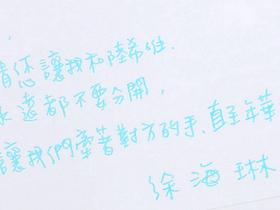 請您讓我和陸希唯.
永遠都不要分開,
讓我們牽著對方的手、直至年華
徐海琳